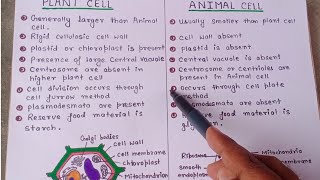 PLANT CELL
Generally larger than Animal cell.
Rigid cellulosic cell wall
Plastid or chloroplast is present
Presence of large Central Vacuole
Centrosome are absent in higher plant cell
Cell division occurs through cell furrow method
plasmodesmata are present
Reserve food material is Starch.
Golgi bodies
cell wall
Cell membrane
chloroplast
Mitochondria
ANIMAL CELL
Usually smaller than plant cell
Cell wall absent
plastid is absent
Central vacuole is absent
Centrosome or centrioles are present in Animal cell
occurs through cell plate method
plasmodesmata are absent
food material is
Ribosome
Smooth